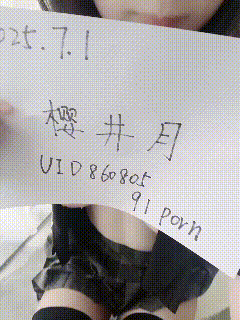 025.7.1
樱井月
UID860805
91 porn